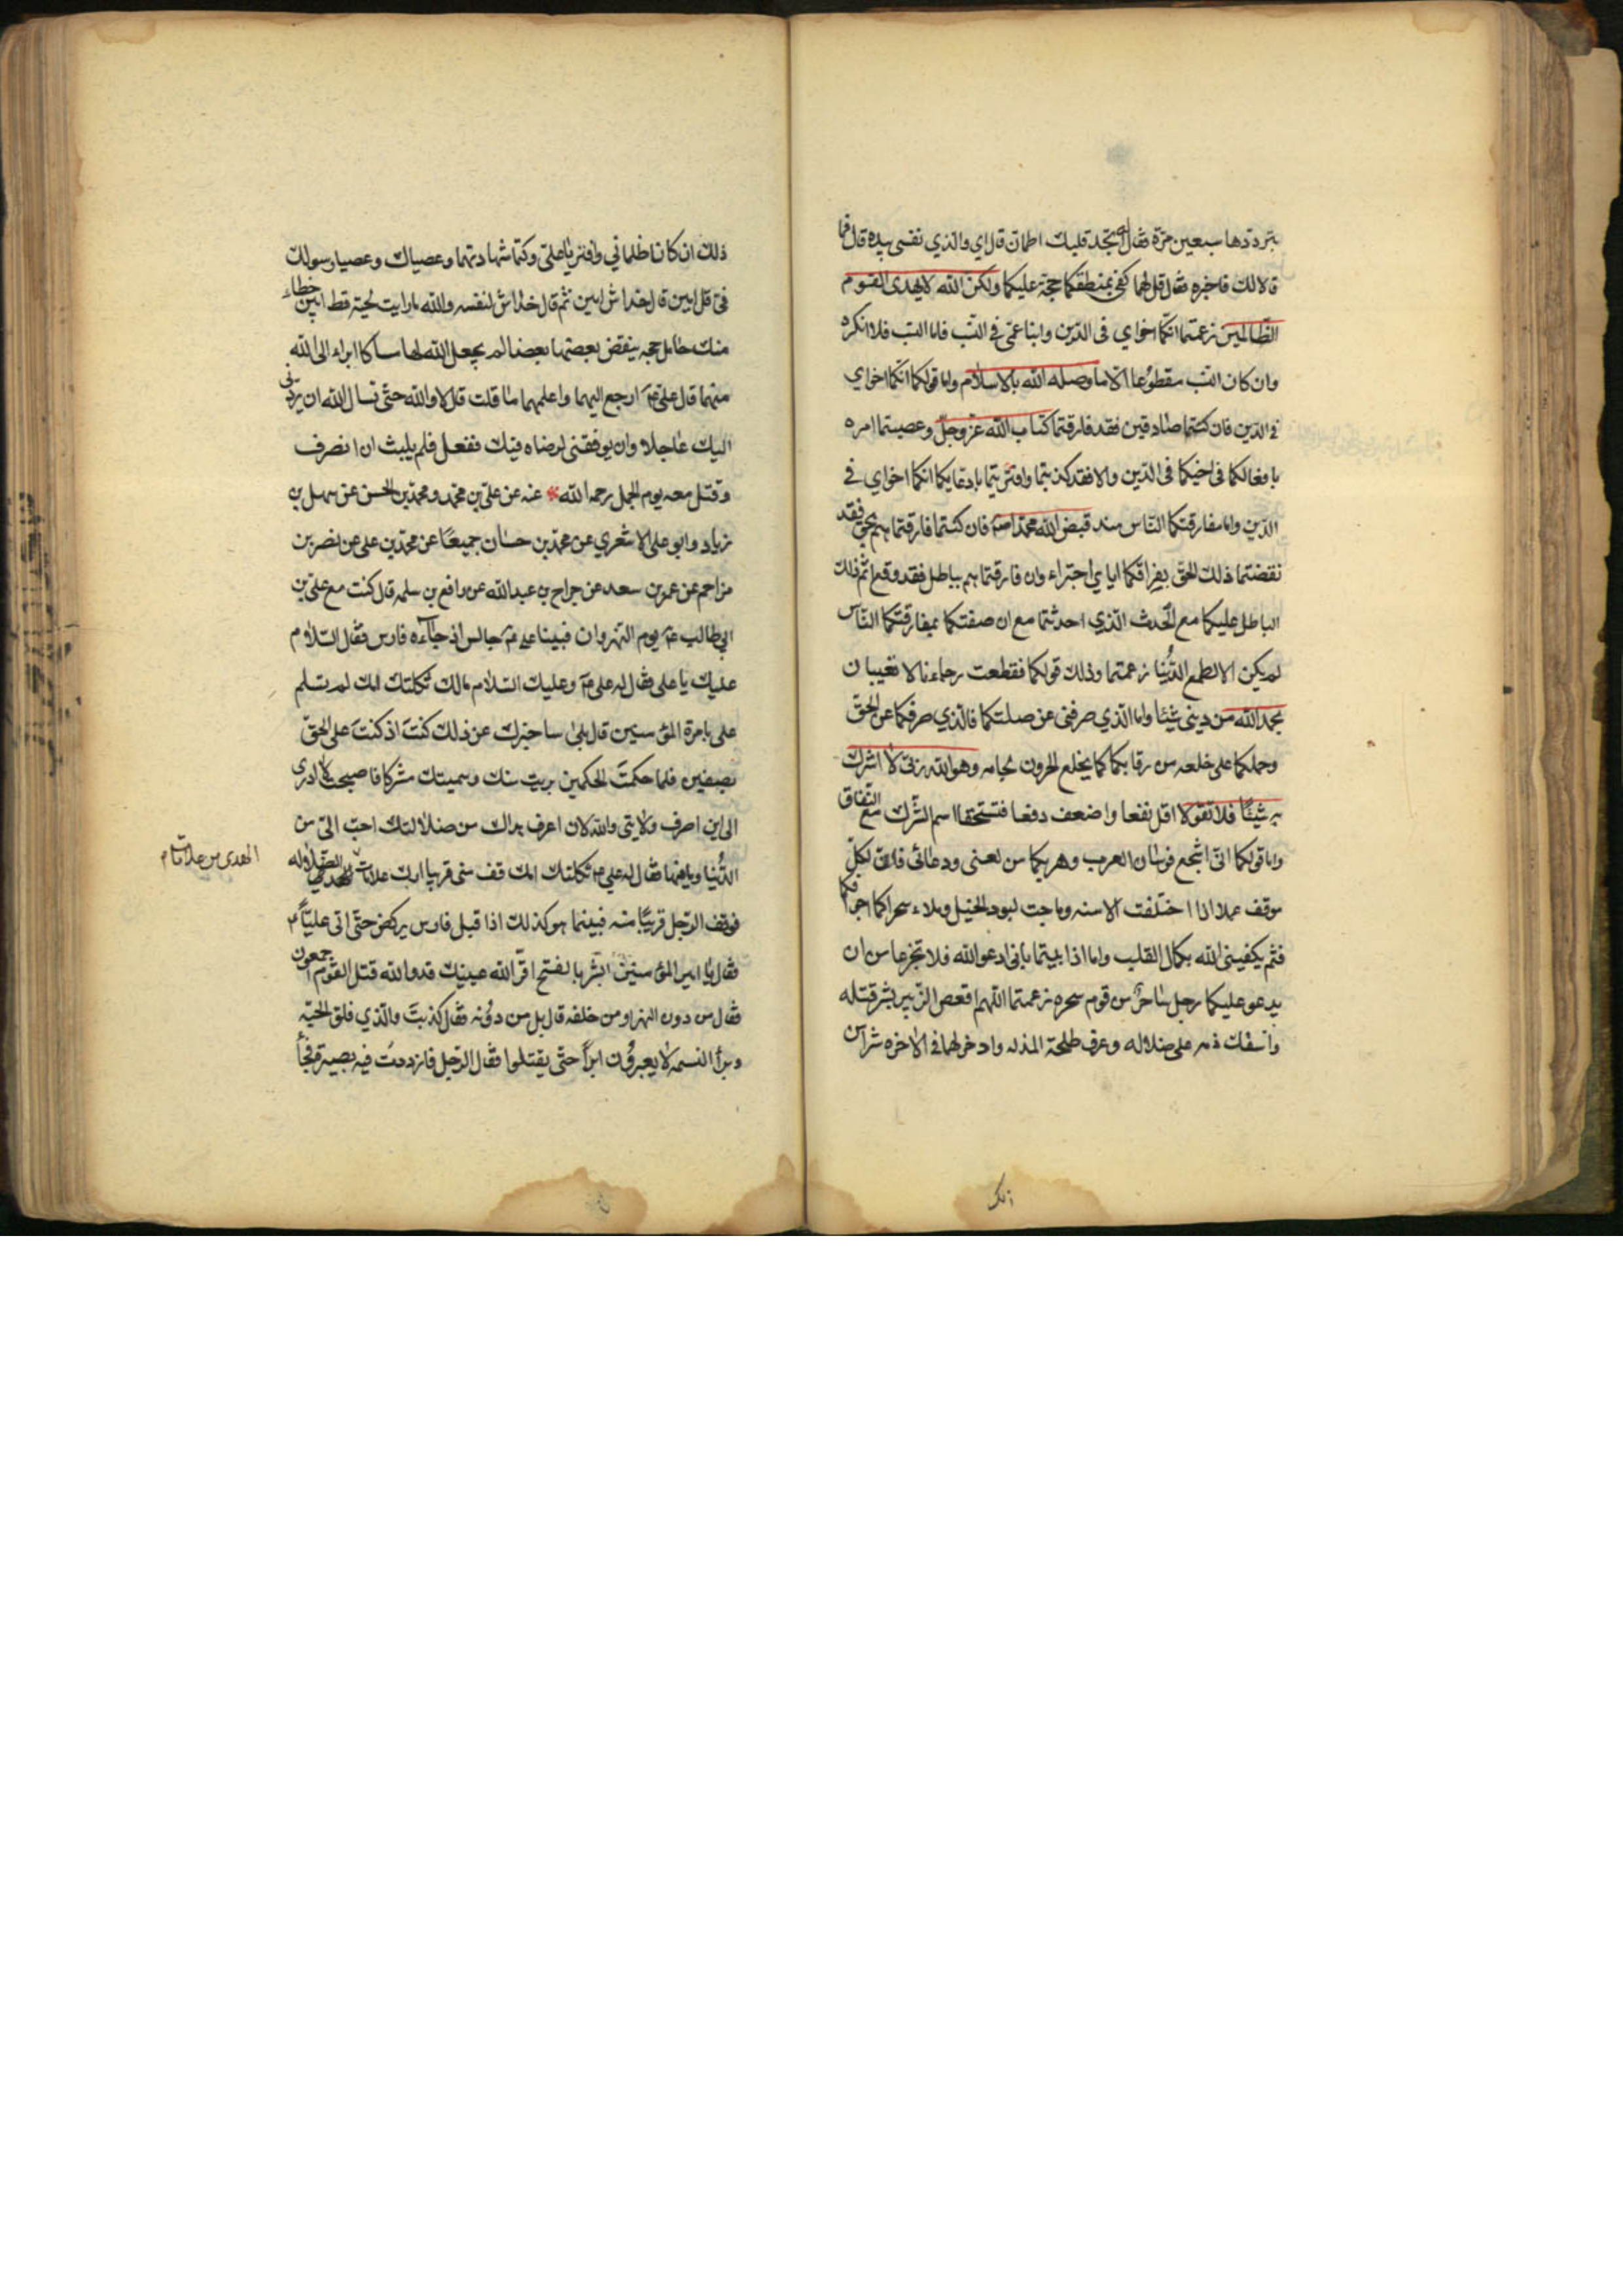 بترددها سبعين مرة فقال له تجد قلبك اطمان قال اي والذي نفسى بيده قال فما
قالا لك فاخبره فقال قل لهما كفى بمنطقكما حجة عليكما ولكن الله لا يهدى القوم
الظالمين زعمتما انكما اخواي فى الدين وابنا عمى فى النسب فاما النسب فلا انكره
وان كان النسب مقطوعا الا ما وصله الله بالاسلام واما قولكما انكما اخواي
فى الدين فان كنتما صادقين فقد فارقتما كتاب الله عز وجل وعصيتما امره
بافعالكما فى اخيكما فى الدين والا فقد كذبتما وافتريتما بادعايكما انكما اخواي فى
الدين واما مفارقتكما الناس منذ قبض الله محمدا ص فان كنتما فارقتماهم بحق فقد
نقضتما ذلك الحق بفراقكما اياي اجتراء وان فارقتماهم بباطل فقد وقع اثم ذلك
الباطل عليكما مع الحدث الذي احدثتما مع ان صفتكما بمفارقتكما الناس
لم يكن الا لطمع الدنيا زعمتما وذلك قولكما فقطعت رجاءنا لا تعيبان
بحمد الله من ديني شيئا واما الذي صرفنى عن صلتكما فالذي صرفكما عن الحق
وحملكما على خلعه من رقابكما كما يخلع الحرون لجامه وهو الله ربى لا اشرك
به شيئا فلا تقولا اقل نفعا واضعف دفعا فتستحقا اسم الشرك مع النفاق
واما قولكما انى اشجع فرسان العرب وهربكما من لعنى ودعائى فان لكل
موقف عملا اذا اختلفت الاسنه وماجت لبود الخيل وملاء سحراكما اجوافكما
فثم يكفينى الله بكمال القلب واما اذا ابيتما بانى ادعو الله فلا تجزعا من ان
يدعو عليكما رجل ساحر من قوم سحره زعمتما اللهم اقعص الزبير بشر قتله
واسفك دمه على ضلاله وعرف طلحة المذله وادخر لهما فى الاخره شرا من
ذلك ان كانا ظلمانى وافتريا على وكتما شهادتهما وعصياك وعصيا رسولك
فى قل امين قال خداش امين ثم قال خداش لنفسه والله ما رايت لحية قط ابين خطاء
منك حامل حجه ينقض بعضها بعضا لم يجعل الله لها مساكا ابراء الى الله
منهما قال على ع ارجع اليهما واعلمهما ما قلت قال لا والله حتى تسال الله ان يردنى
اليك عاجلا وان يوفقنى لرضاه فيك ففعل فلم يلبث ان انصرف
وقتل معه يوم الجمل رحمه الله * عنه عن على بن محمد ومحمد بن الحسن عن سهل بن
زياد وابو على الاشعري عن محمد بن حسان جميعا عن محمد بن على عن نصر بن
مزاحم عن عمرو بن سعد عن جراح بن عبد الله عن رافع بن سلمه قال كنت مع على بن
ابي طالب ع يوم النهروان فبينا على ع جالس اذ جاءه فارس فقال السلام
عليك يا على فقال له على ع وعليك السلام مالك ثكلتك امك لم تسلم
على بامرة المؤمنين قال بلى ساخبرك عن ذلك كنت اذ كنت على الحق
بصفين فلما حكمت الحكمين بريت منك وسميتك مشركا فاصبحت لا ادرى
الى اين اصرف ولايتى والله لان اعرف هداك من ضلالتك احب الى من
الدنيا وما فيها فقال له على ع ثكلتك امك قف منى قريبا اريك علامات الضلاله
الهدى من علامات
فوقف الرجل قريبا منه فبينما هو كذلك اذا قبل فارس يركض حتى اتى عليا ع
فقال يا امير المؤمنين ابشر بالفتح اقر الله عينيك قد والله قتل القوم اجمعون
فقال من دون النهر او من خلفه قال بل من دونه فقال كذبت والذي فلق الحبة
وبرأ النسمه لا يعبرون ابدا حتى يقتلوا فقال الرجل فازددت فيه بصيرة فجأ